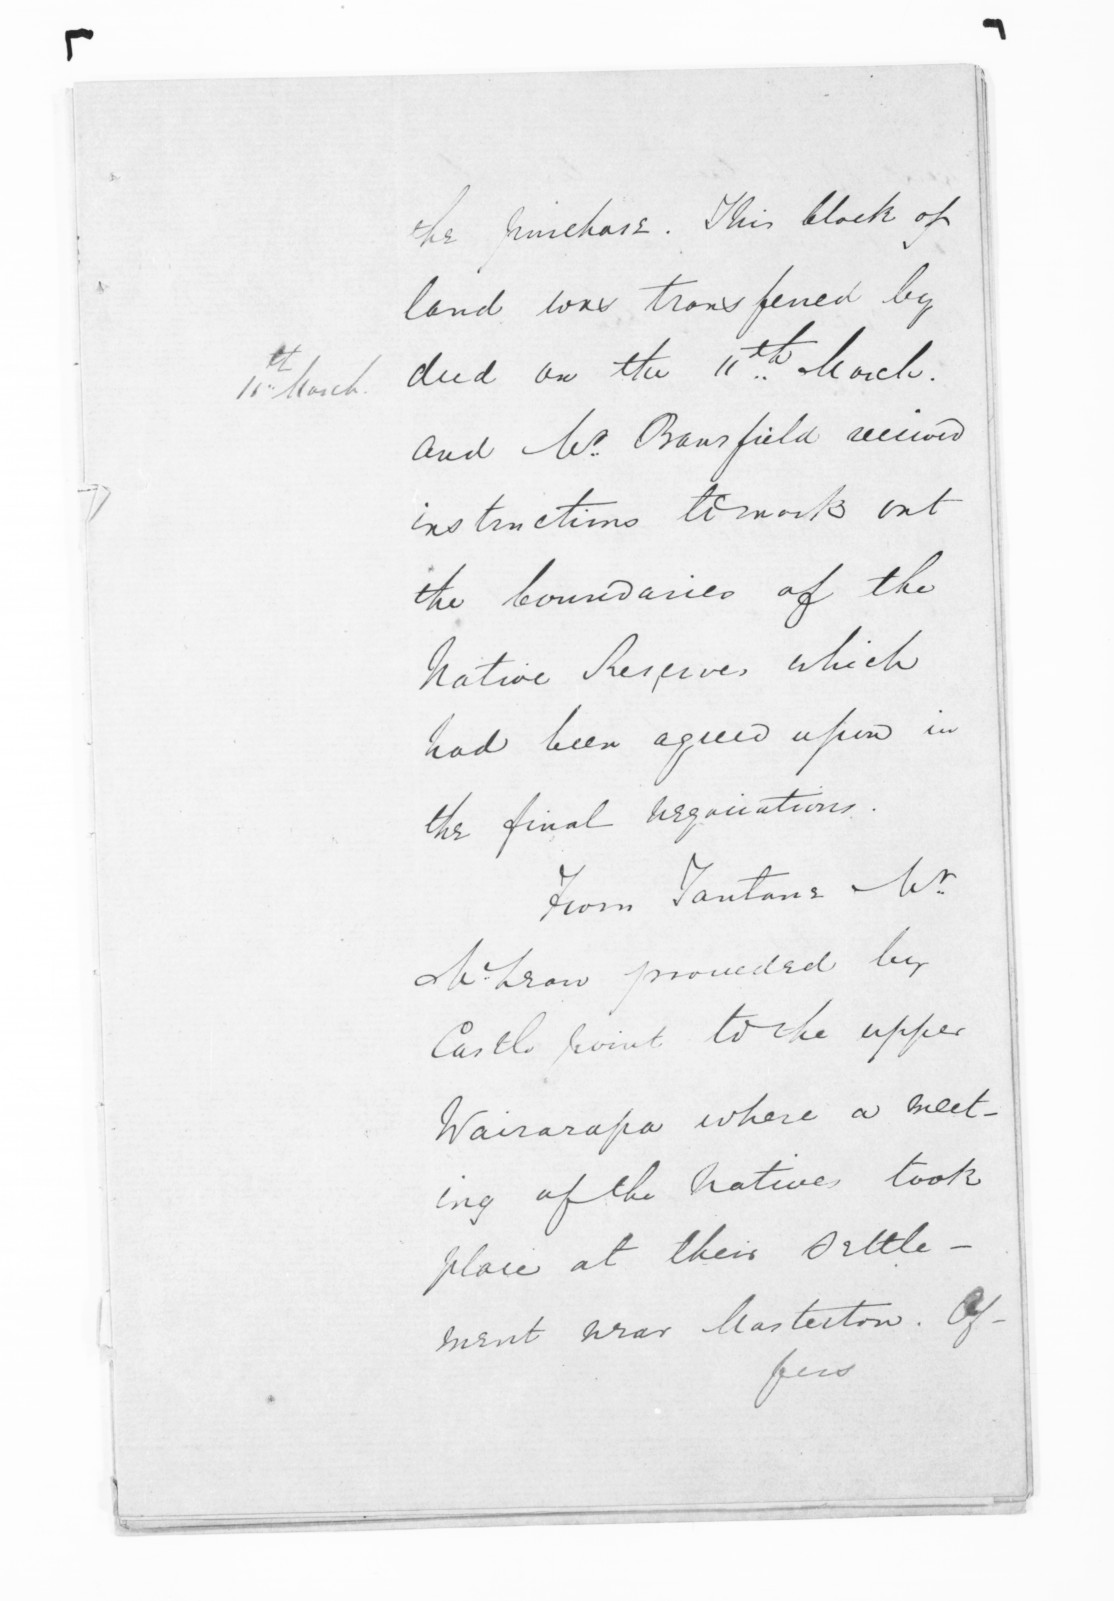 the purchase. This block of
land was transferred by
11th March.
deed on the 11th March.
and Mr. Bousfield received
instructions to mark out
the boundaries of the
Native Reserves which
had been agreed upon in
the final negociations.
From Tautane Mr.
McLean proceeded by
Castle point to the upper
Wairarapa where a meet-
ing of the Natives took
place at their settle-
ment near Masterton. Of-
fers